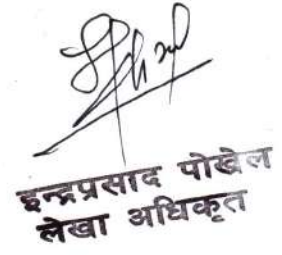 इन्द्रप्रसाद पोखेल
लेखा अधिकृत